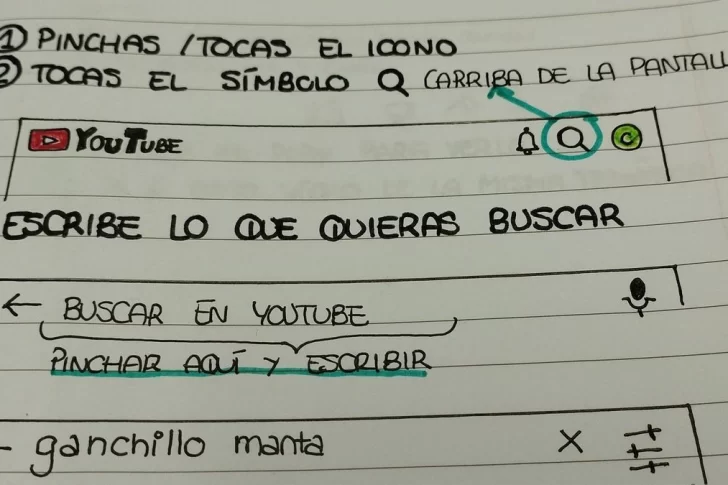 ① PINCHAS / TOCAS EL ICONO
② TOCAS EL SÍMBOLO Q (ARRIBA DE LA PANTALL
YOUTUBE
C
ESCRIBE LO QUE QUIERAS BUSCAR
← BUSCAR EN YOUTUBE
PINCHAR AQUÍ Y ESCRIBIR
- ganchillo manta X